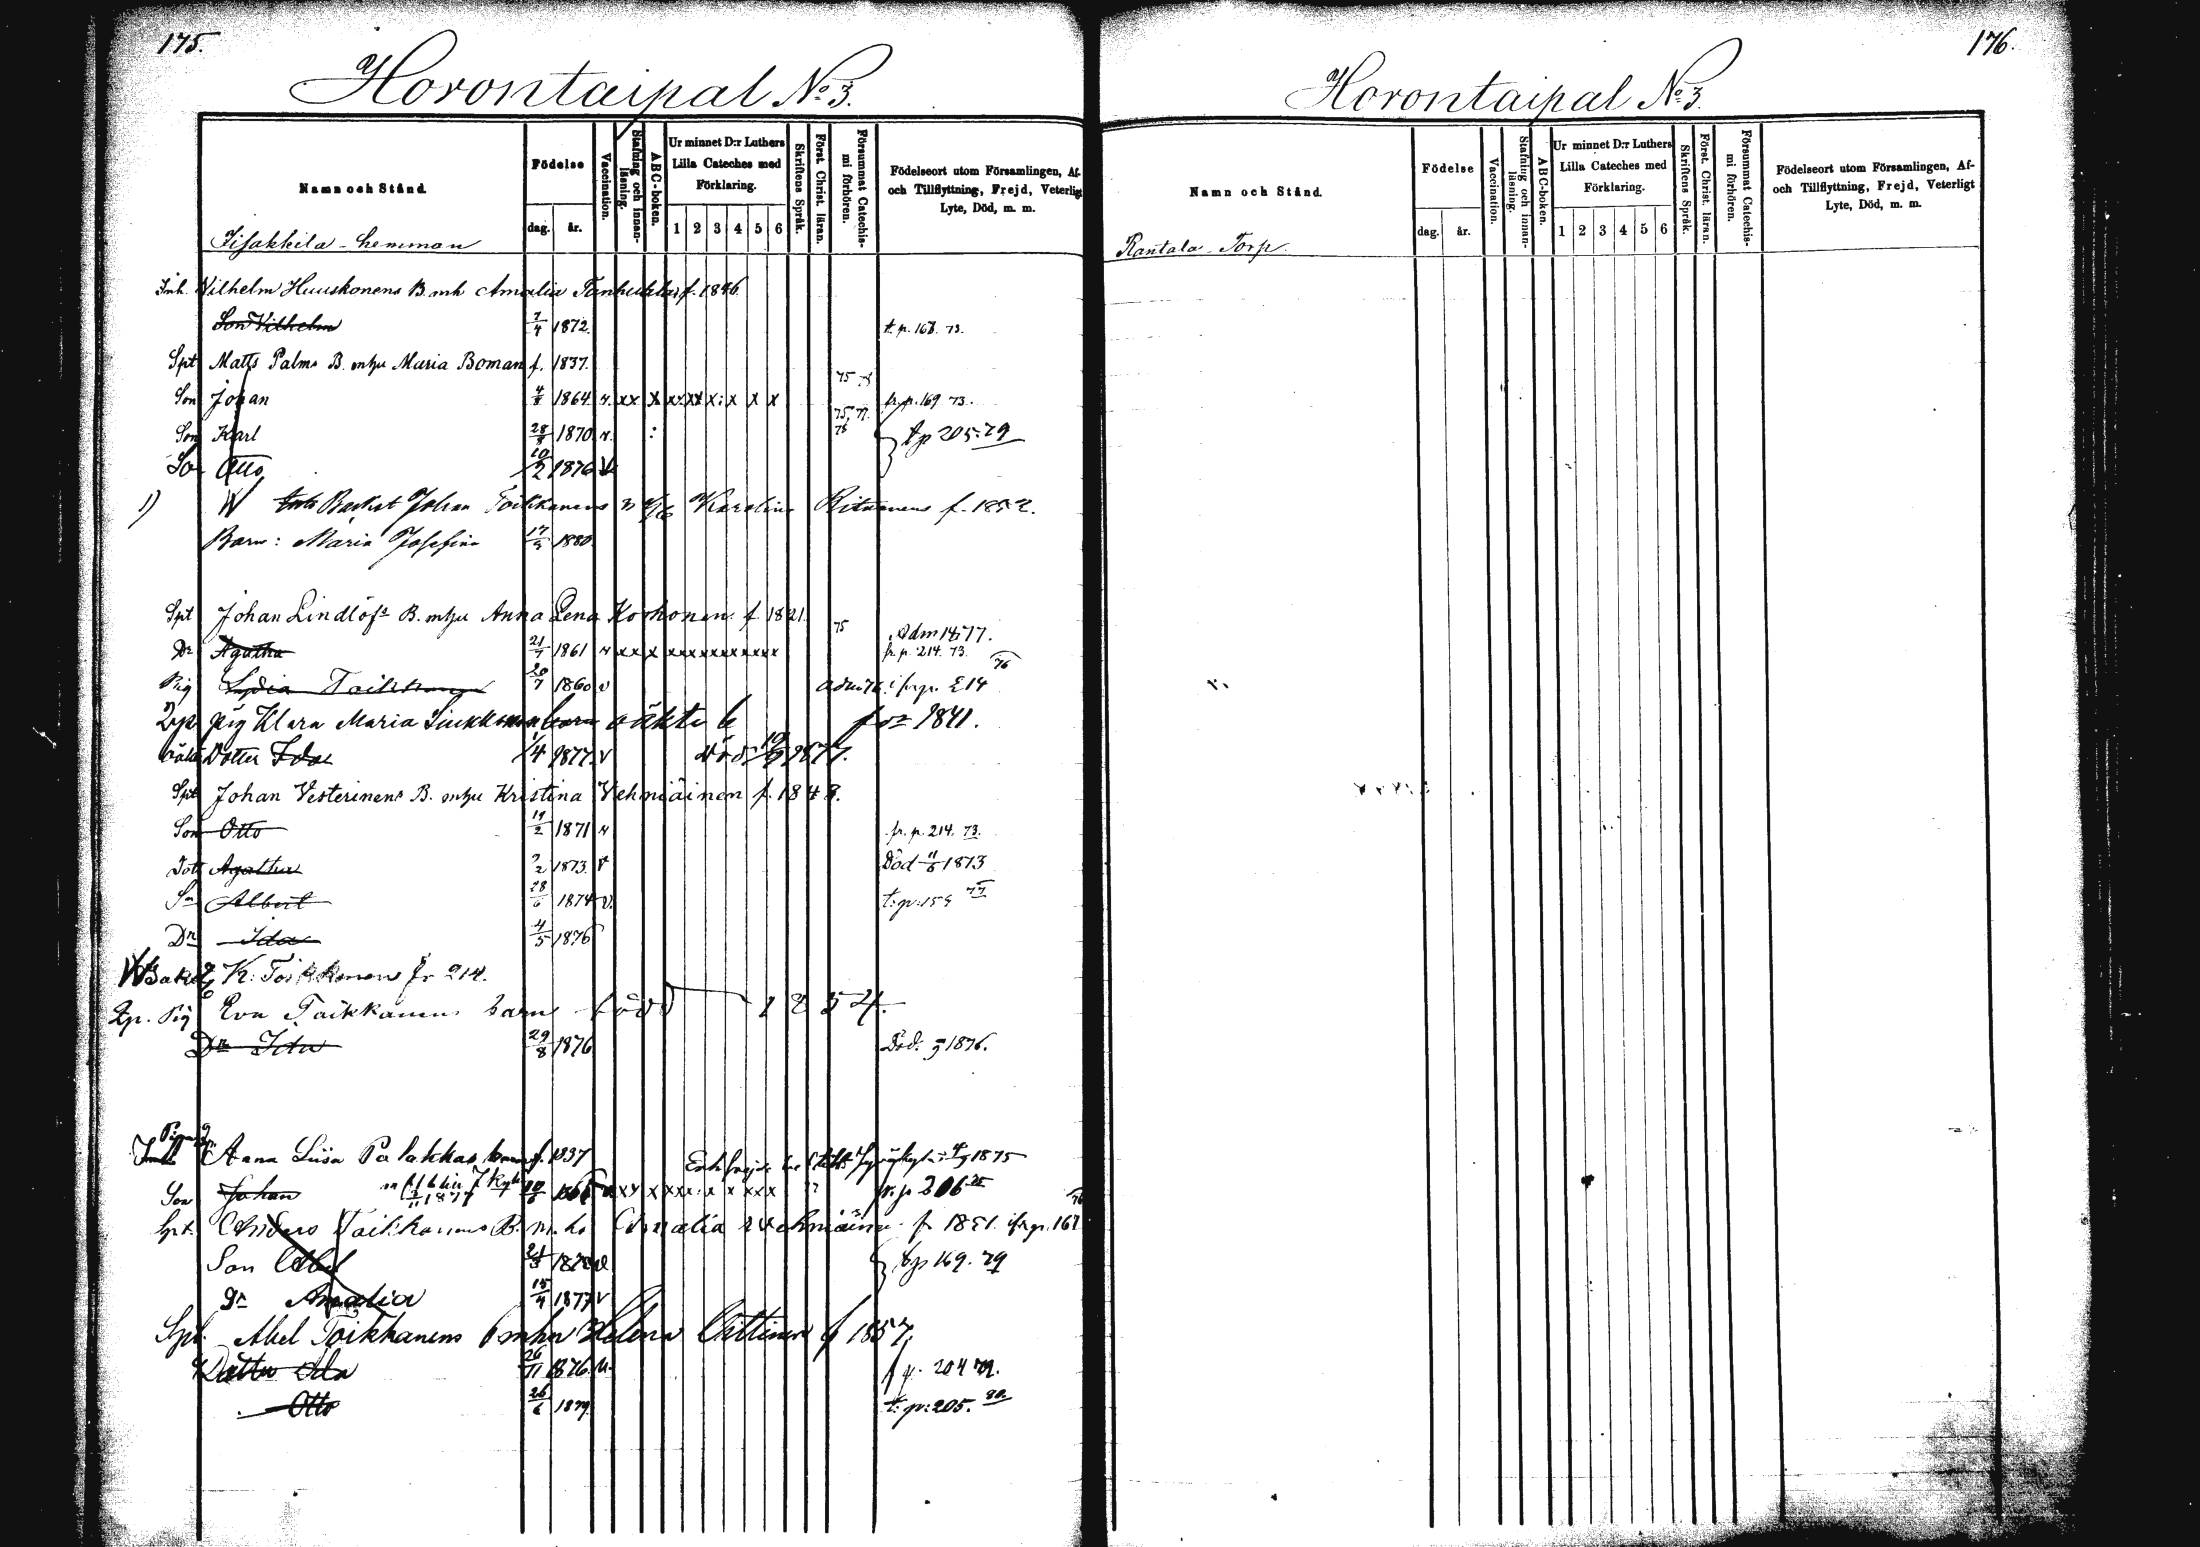 175.
Horontaipal No 3.
Namn och Stånd.
Födelse
dag.
år.
Vaccination.
Stafning och innan-läsning.
ABC-boken.
Ur minnet D:r Luthers
Lilla Cateches med
Förklaring.
1 2 3 4 5 6
Skriftens Språk.
Först. Christ. läran.
Försummat Catechis-mi förhören.
Födelseort utom Församlingen, Af-
och Tillflyttning, Frejd, Veterligt
Lyte, Död, m. m.
Iisakkila - hemman
Inh. Wilhelm Huuskonens B. mh Amalia f. 1846
Son Vilhelm 7/4 1872. t. p. 168. 73.
Spt Matts Palms B. mhu Maria Boman f. 1837.
75
Son Johan 4/8 1864. v. xx x xx xx x: x x x fr. p. 169 73.
75, 77.
Son Karl 28/8 1870. v. : 78 tp 205. 79
So Otto 10/2 1876 v
1) Backst Johan Toikkanens Karolina f. 1852.
Barn: Maria Josefina 17/3 1880
Spt Johan Lindlöfs B. mhu Anna Lena Korhonen f. 1821.
75 Adm 1877.
Dr Agatha 21/7 1861 v xx x xxxxxxxxxx fr. p. 214. 73.
76
Pig Lydia Toikkanen 20/7 1860 v adm 76 ifr p. 214
Pig Klara Maria oäkta b för 1841.
oäkt Dotter Ida 1/4 1877. v Död 19/9 1877.
Spt Johan Vesterinens B. mhu Kristina Vehmäinen f. 1848.
Son Otto 14/2 1871 v fr. p. 214. 73.
Dott Agatha 2/2 1873. v Död 11/6 1873
Son Albert 28/6 1874 v. t. p: 159 77
Dr Ida 4/5 1876
K. Toikkanen fr 214.
Pig Eva Toikkanens barn född 1854.
Dr Ida 29/8 1876 Död. 9 1876.
Anna Lisa Palakkas barn f. 1837 1875
Son Johan 10/6 v xx x xxx: x x xxx 77 fr. p 206 75
1877
Spt. Anders Toikkanens B. m. hu Amalia Vehmäinen f. 1851. ifr p. 167 76
Son Abel v tp 169. 79
Dr Amalia 15/4 1877 v
Spt. Abel Toikkanens b mhu Helena f 1857.
Dotter Ida 26/11 1876. v. f p. 204 79.
Otto 26/6 1879. t. p: 205. 80.
176.
Horontaipal No 3.
Namn och Stånd.
Födelse
dag.
år.
Vaccination.
Stafning och innan-läsning.
ABC-boken.
Ur minnet D:r Luthers
Lilla Cateches med
Förklaring.
1 2 3 4 5 6
Skriftens Språk.
Först. Christ. läran.
Försummat Catechis-mi förhören.
Födelseort utom Församlingen, Af-
och Tillflyttning, Frejd, Veterligt
Lyte, Död, m. m.
Rantala - Torp.